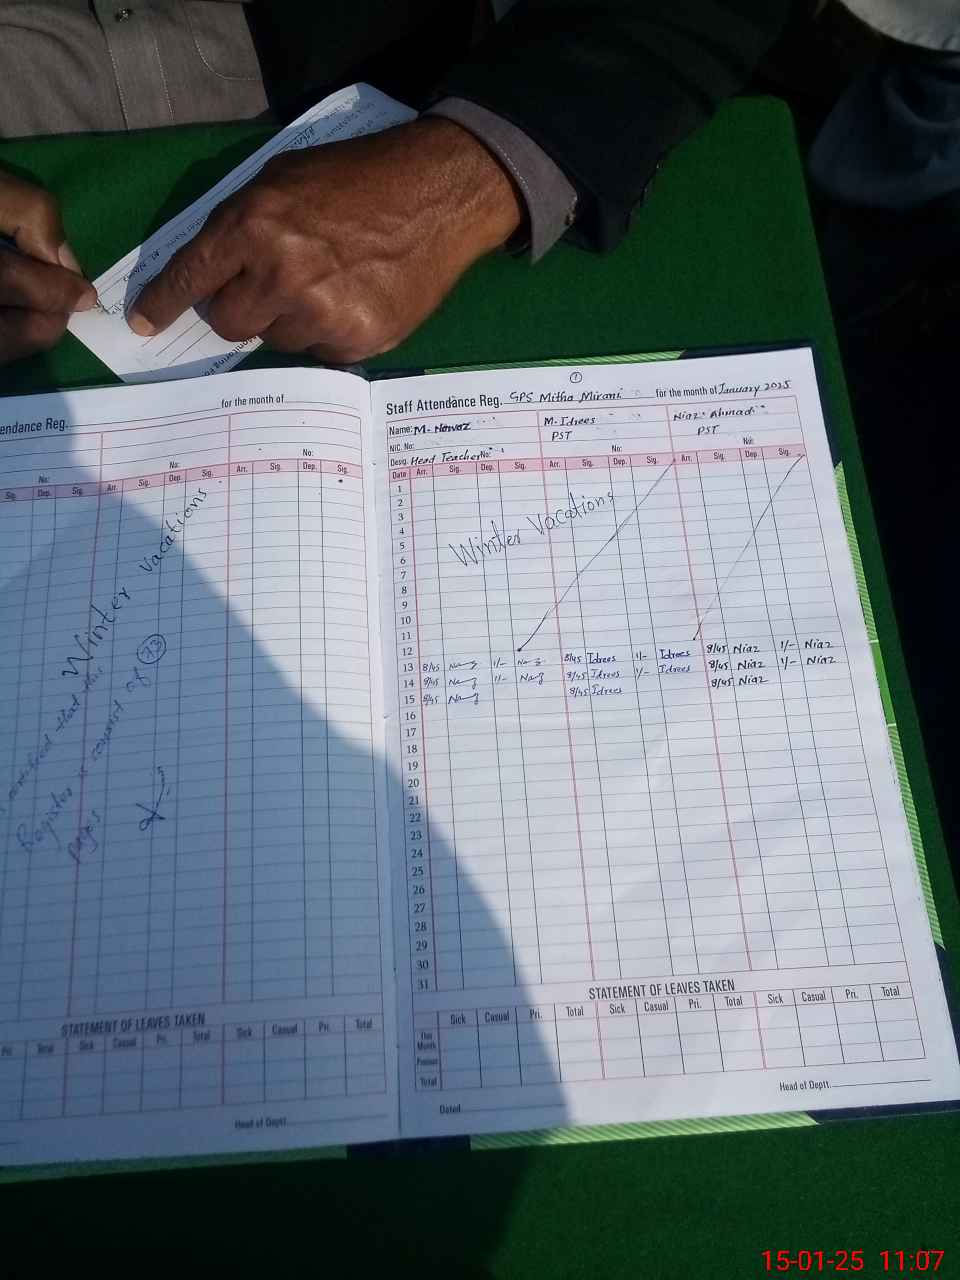 endance Reg.
for the month of
No: No: No:
Sig. Dep. Sig. Arr. Sig. Dep. Sig. Arr. Sig. Dep. Sig.
Winter Vacations
certified that this
Register is consist of 73
pages
STATEMENT OF LEAVES TAKEN
Pri. Total Sick Casual Pri. Total Sick Casual Pri. Total
Head of Deptt.
1
Staff Attendance Reg. GPS Mitha Mirani for the month of January 2025
Name: M. Nawaz M. Idrees Niaz Ahmad
NIC. No: PST PST
Desig. Head Teacher No: No: No:
Date Arr. Sig. Dep. Sig. Arr. Sig. Dep. Sig. Arr. Sig. Dep. Sig.
1
2
3
4
5
6
7
8
9
10
11
12
Winter Vacations
13 8/45 Naz 1/- Naz 8/45 Idrees 1/- Idrees 8/45 Niaz 1/- Niaz
14 8/45 Naz 1/- Naz 8/45 Idrees 1/- Idrees 8/45 Niaz 1/- Niaz
15 8/45 Naz 8/45 Idrees 8/45 Niaz
16
17
18
19
20
21
22
23
24
25
26
27
28
29
30
31
STATEMENT OF LEAVES TAKEN
Sick Casual Pri. Total Sick Casual Pri. Total Sick Casual Pri. Total
This Month
Previous
Total
Dated
Head of Deptt.
15-01-25 11:07